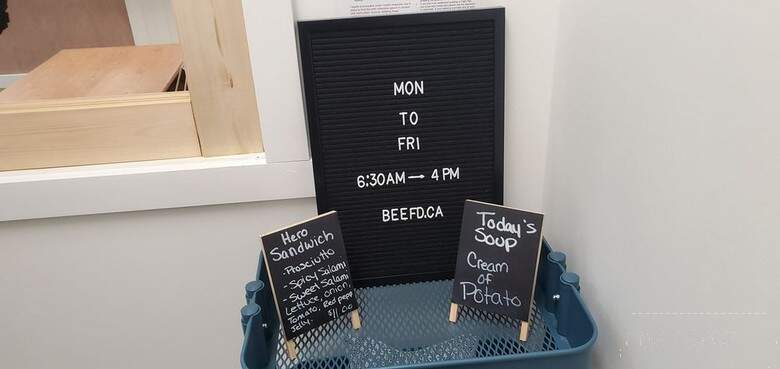 MON
TO
FRI
6:30AM → 4 PM
BEEFD.CA
Hero
Sandwich
- Prosciutto
- Spicy Salami
- Sweet Salami
Lettuce, onion,
Tomato, Red pepper
Jelly. $11.00
Today's
Soup
Cream
of
Potato